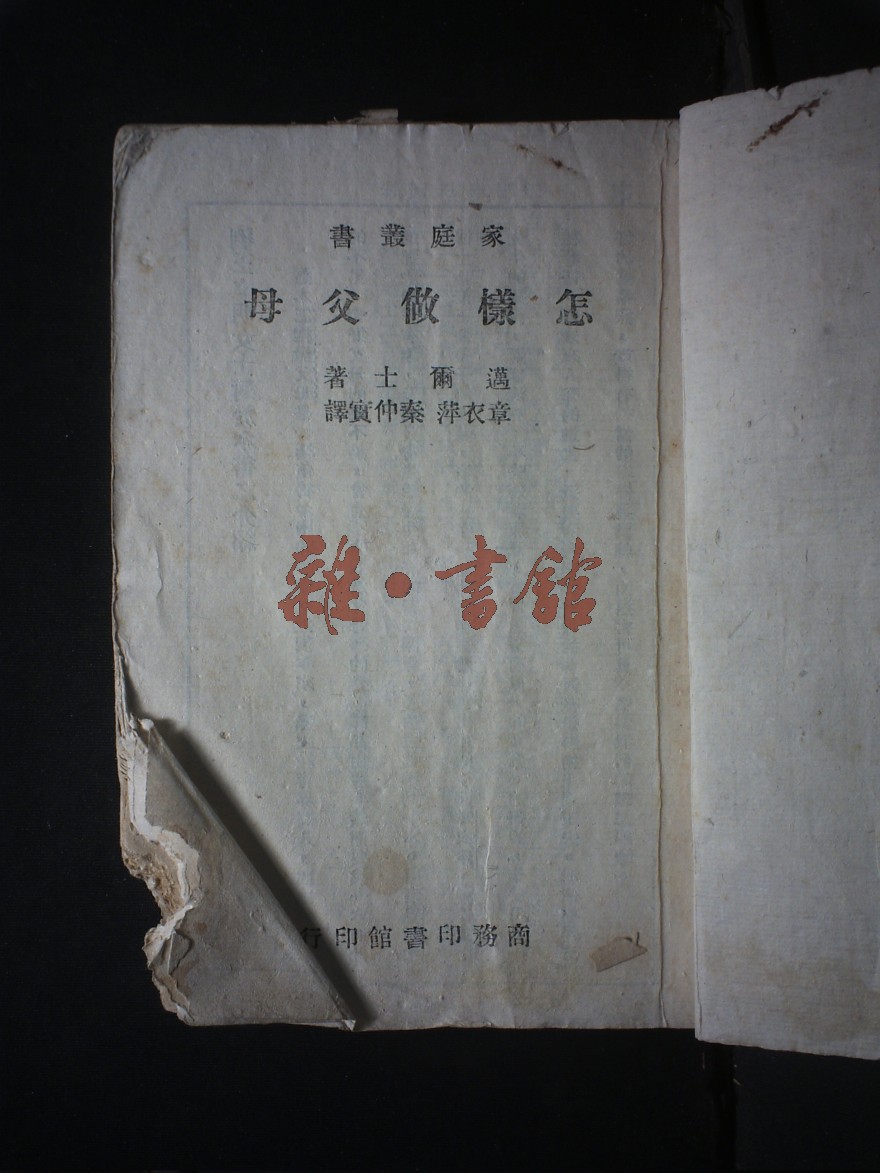 家庭叢書
怎樣做父母
邁爾士著
章衣萍 秦仲實譯
雜·書館
商務印書館印行